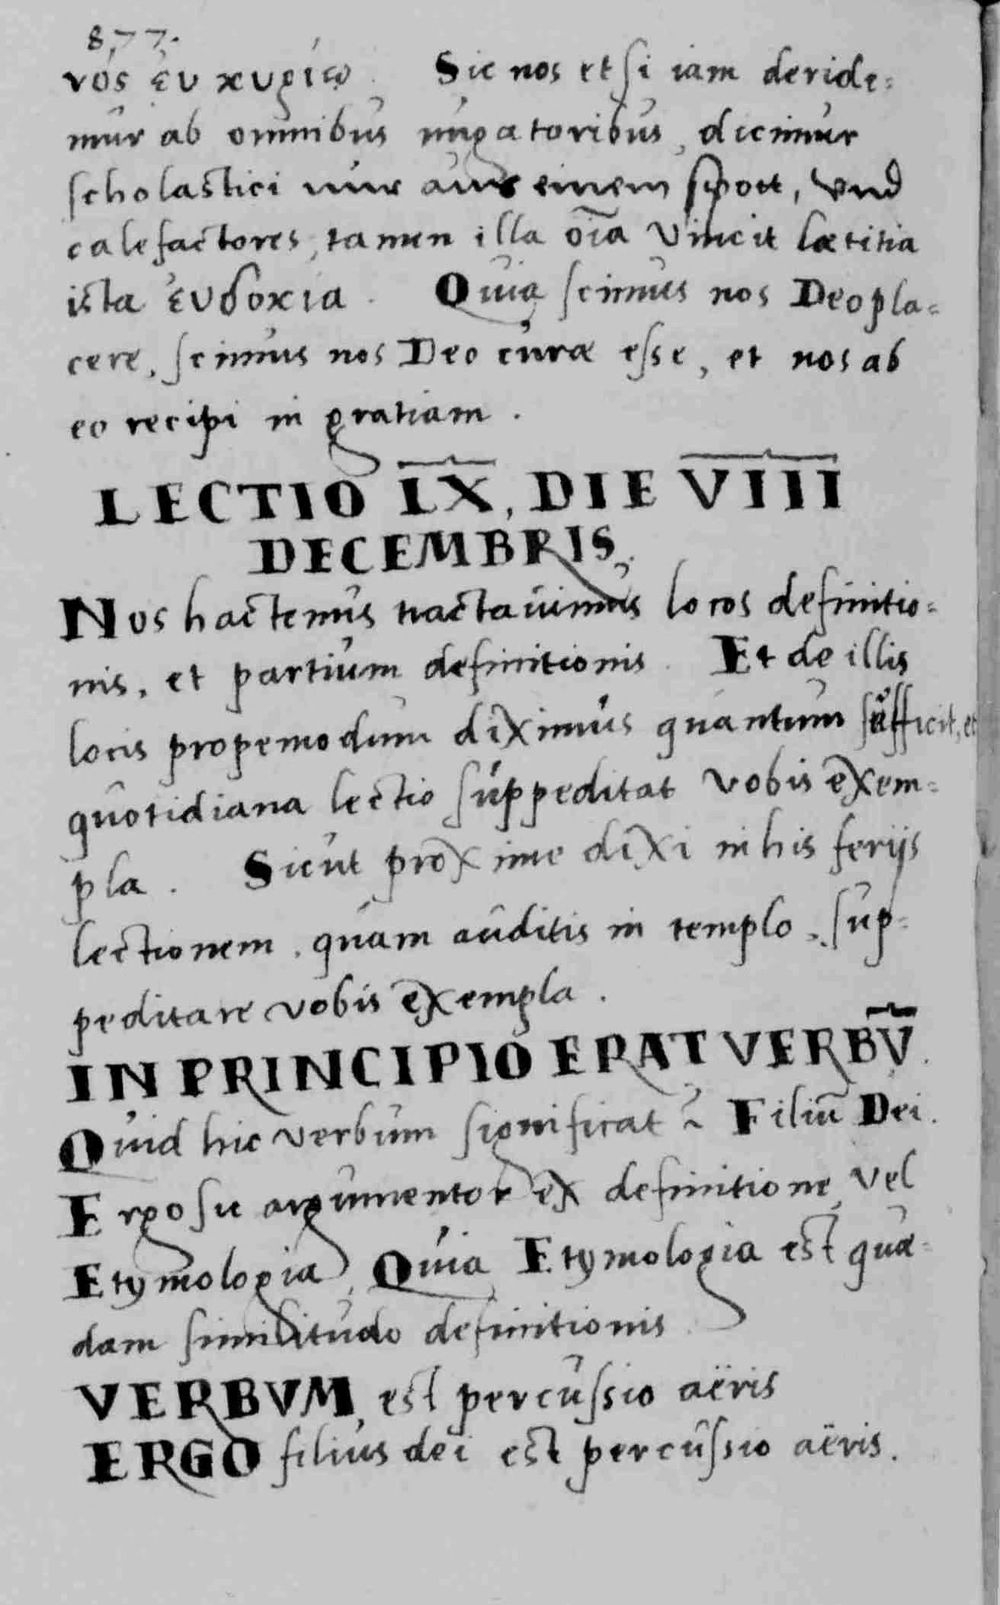 877.
νός ἐν κυρίῳ. Sic nos etsi iam deride=
mur ab omnibus nugatoribus, dicimur
scholastici nur aus einem spott, vnd
calefactores, tamen illa oīa vincit lætitia
ista ἐυδοκία. Quia scimus nos Deo pla=
cere, scimus nos Deo curæ esse, et nos ab
eo recipi in gratiam.
LECTIO IX, DIE VIII
DECEMBRIS.
Nos hactenus tractavimus locos definitio=
nis, et partium definitionis. Et de illis
locis propemodum diximus quantum sufficit, et
quotidiana lectio suppeditat vobis exem=
pla. Sicut proxime dixi in his ferijs
lectionem, quam auditis in templo, sup=
peditare vobis exempla.
IN PRINCIPIO ERAT VERBV̄.
Quid hic verbum significat? Filiū Dei.
Ergo sic argumentor ex definitione, vel
Etymologia, Quia Etymologia est quæ=
dam similitudo definitionis.
VERBVM, est percussio aëris
ERGO filius dei est percussio aëris.